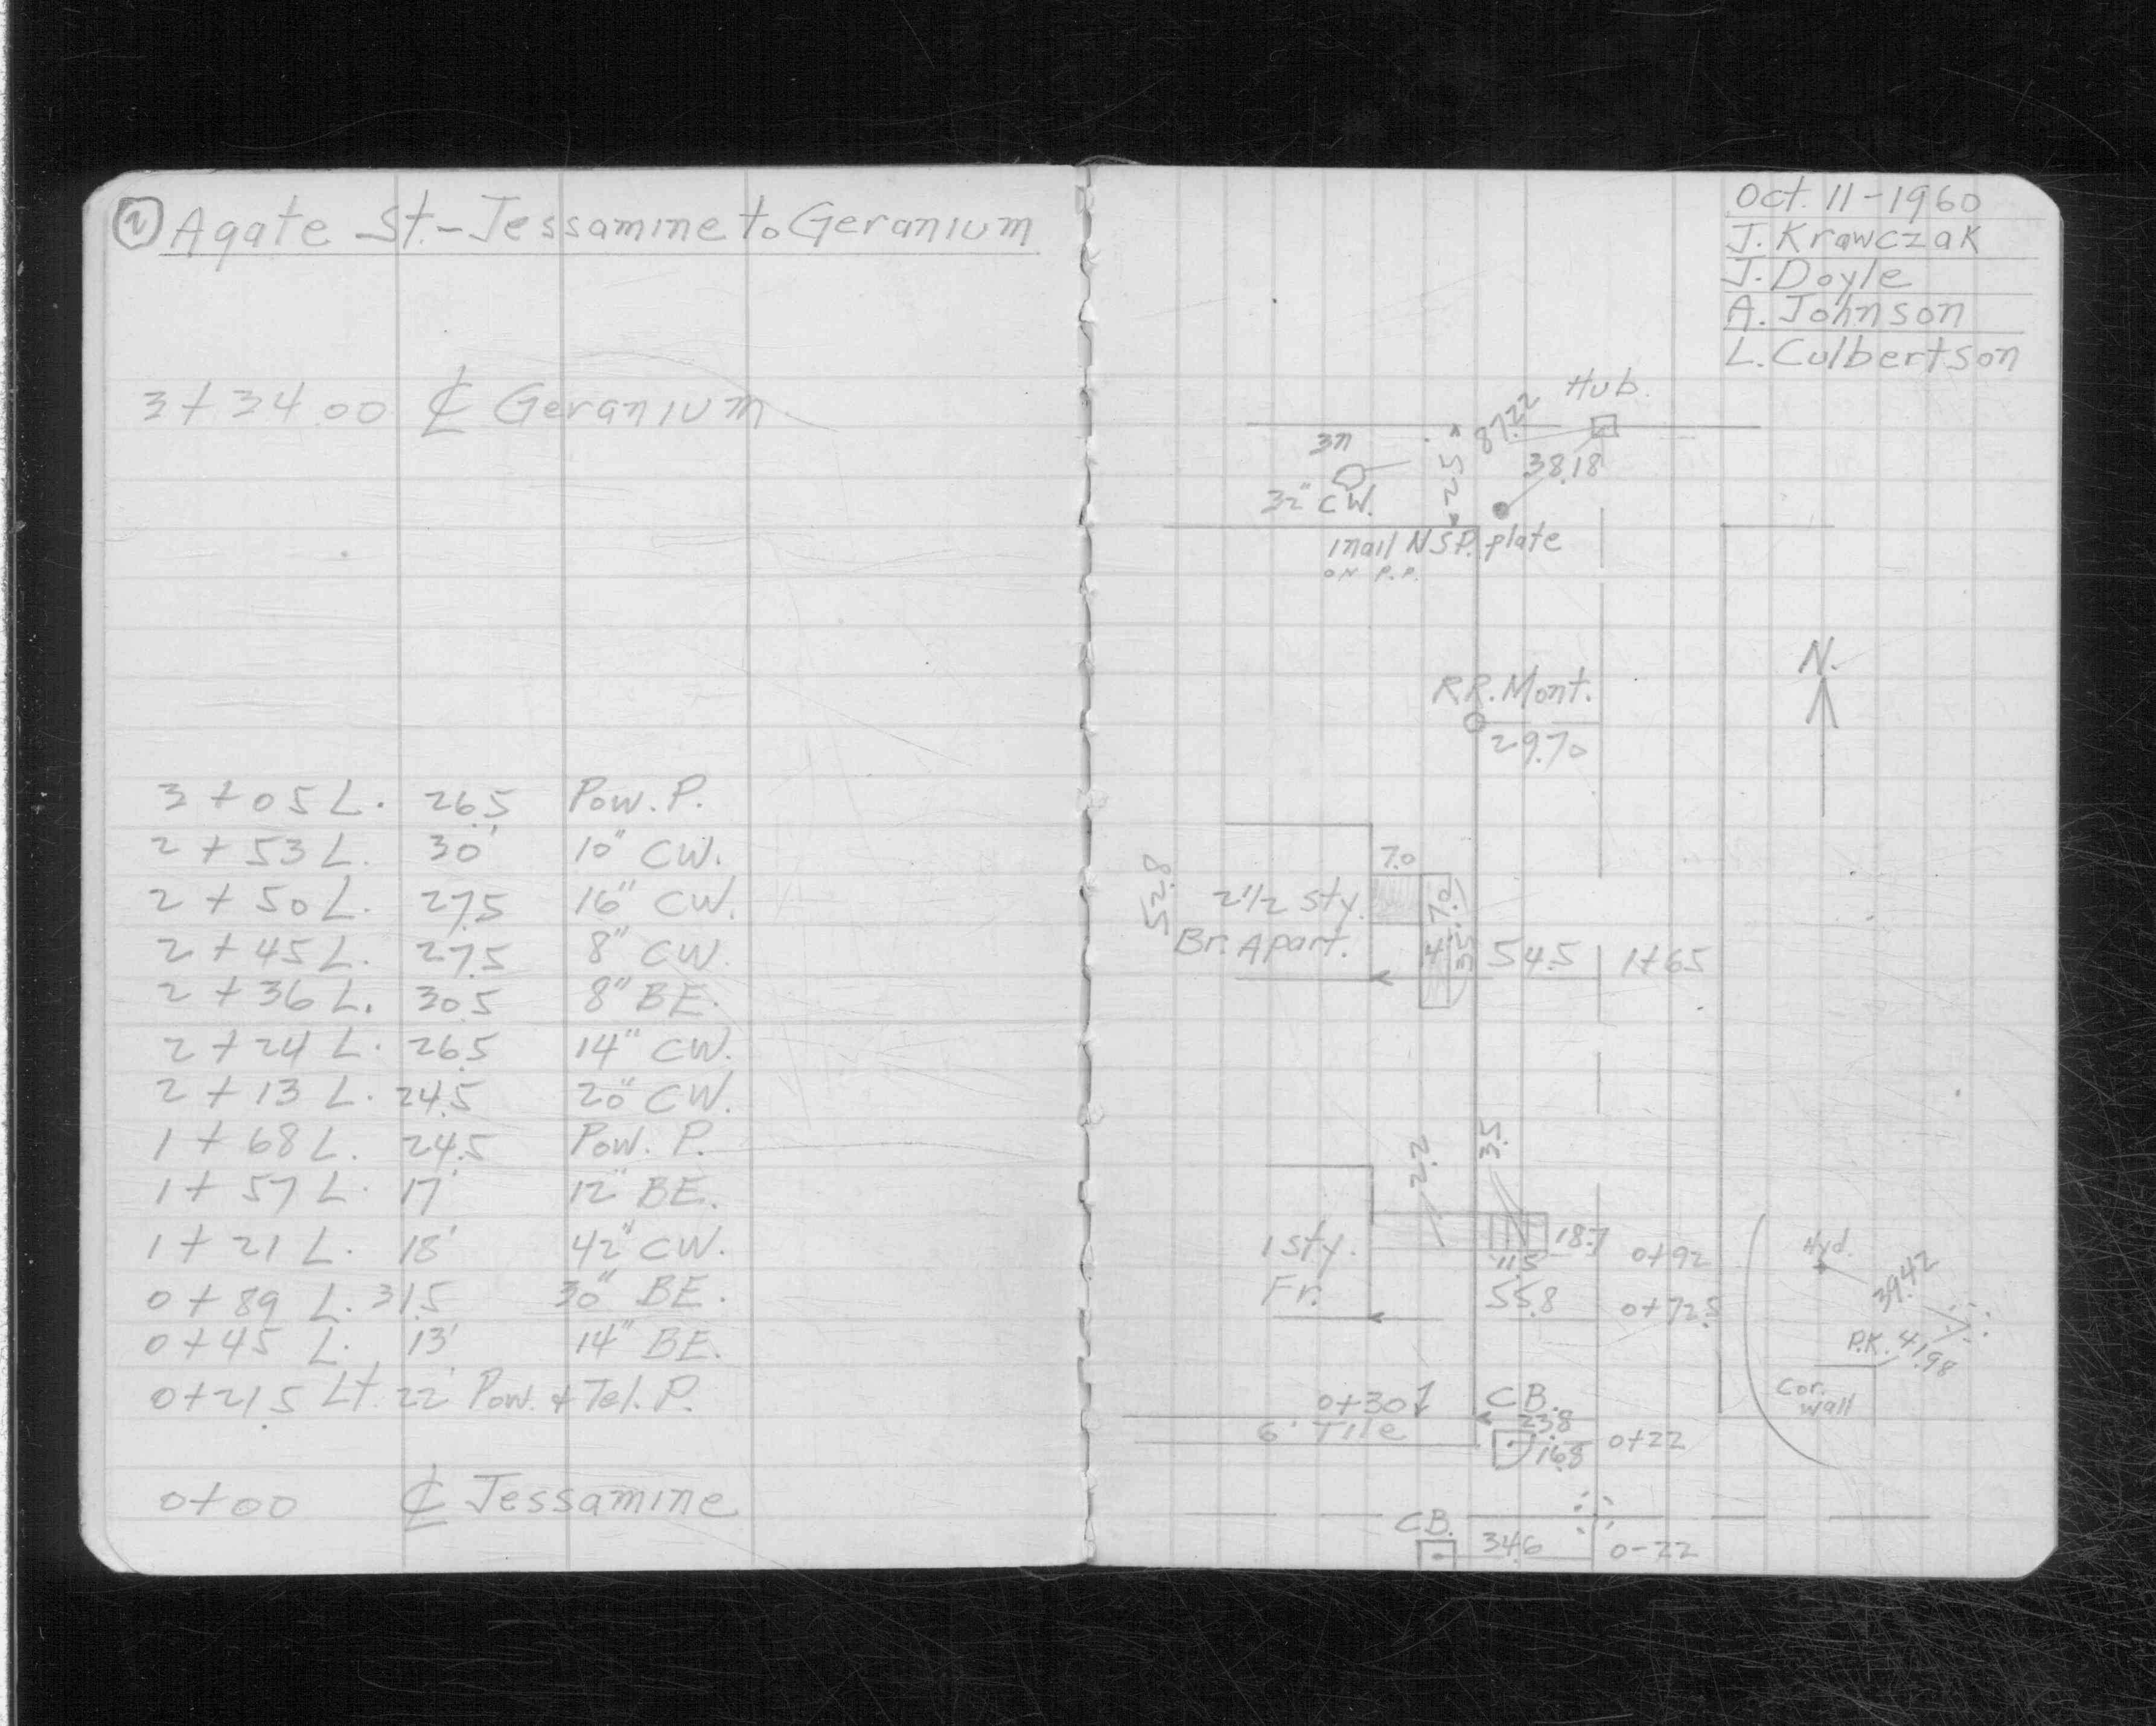 2 Agate St.-Jessamine to Geranium
3+34.00 ℄ Geranium
3+05 L. 26.5 Pow. P.
2+53 L. 30' 10" CW.
2+50 L. 27.5 16" CW.
2+45 L. 27.5 8" CW.
2+36 L. 30.5 8" BE.
2+24 L. 26.5 14" CW.
2+13 L. 24.5 20" CW.
1+68 L. 24.5 Pow. P.
1+57 L. 17' 12" BE.
1+21 L. 18' 42" CW.
0+89 L. 31.5 30" BE.
0+45 L. 13' 14" BE.
0+21.5 Lt. 22' Pow. & Tel. P.
0+00 ℄ Jessamine
Oct. 11-1960
J. Krawczak
J. Doyle
A. Johnson
L. Culbertson
Hub.
87.22
3n
25
38.18
32" CW.
1nail N.S.P. plate
ON P.P.
N.
R.R. Mont.
29.70
52.8
7.0
2 1/2 sty.
7.0
Br. Apart.
3.5
54.5 1+65
2.2
3.5
1 sty.
18.7
0+92
11.5
Fr.
55.8
0+72.8
Hyd.
39.42
P.K. 41.98
Cor. wall
0+30
C.B.
23.8
6' Tile
16.8
0+22
C.B.
34.6
0-22